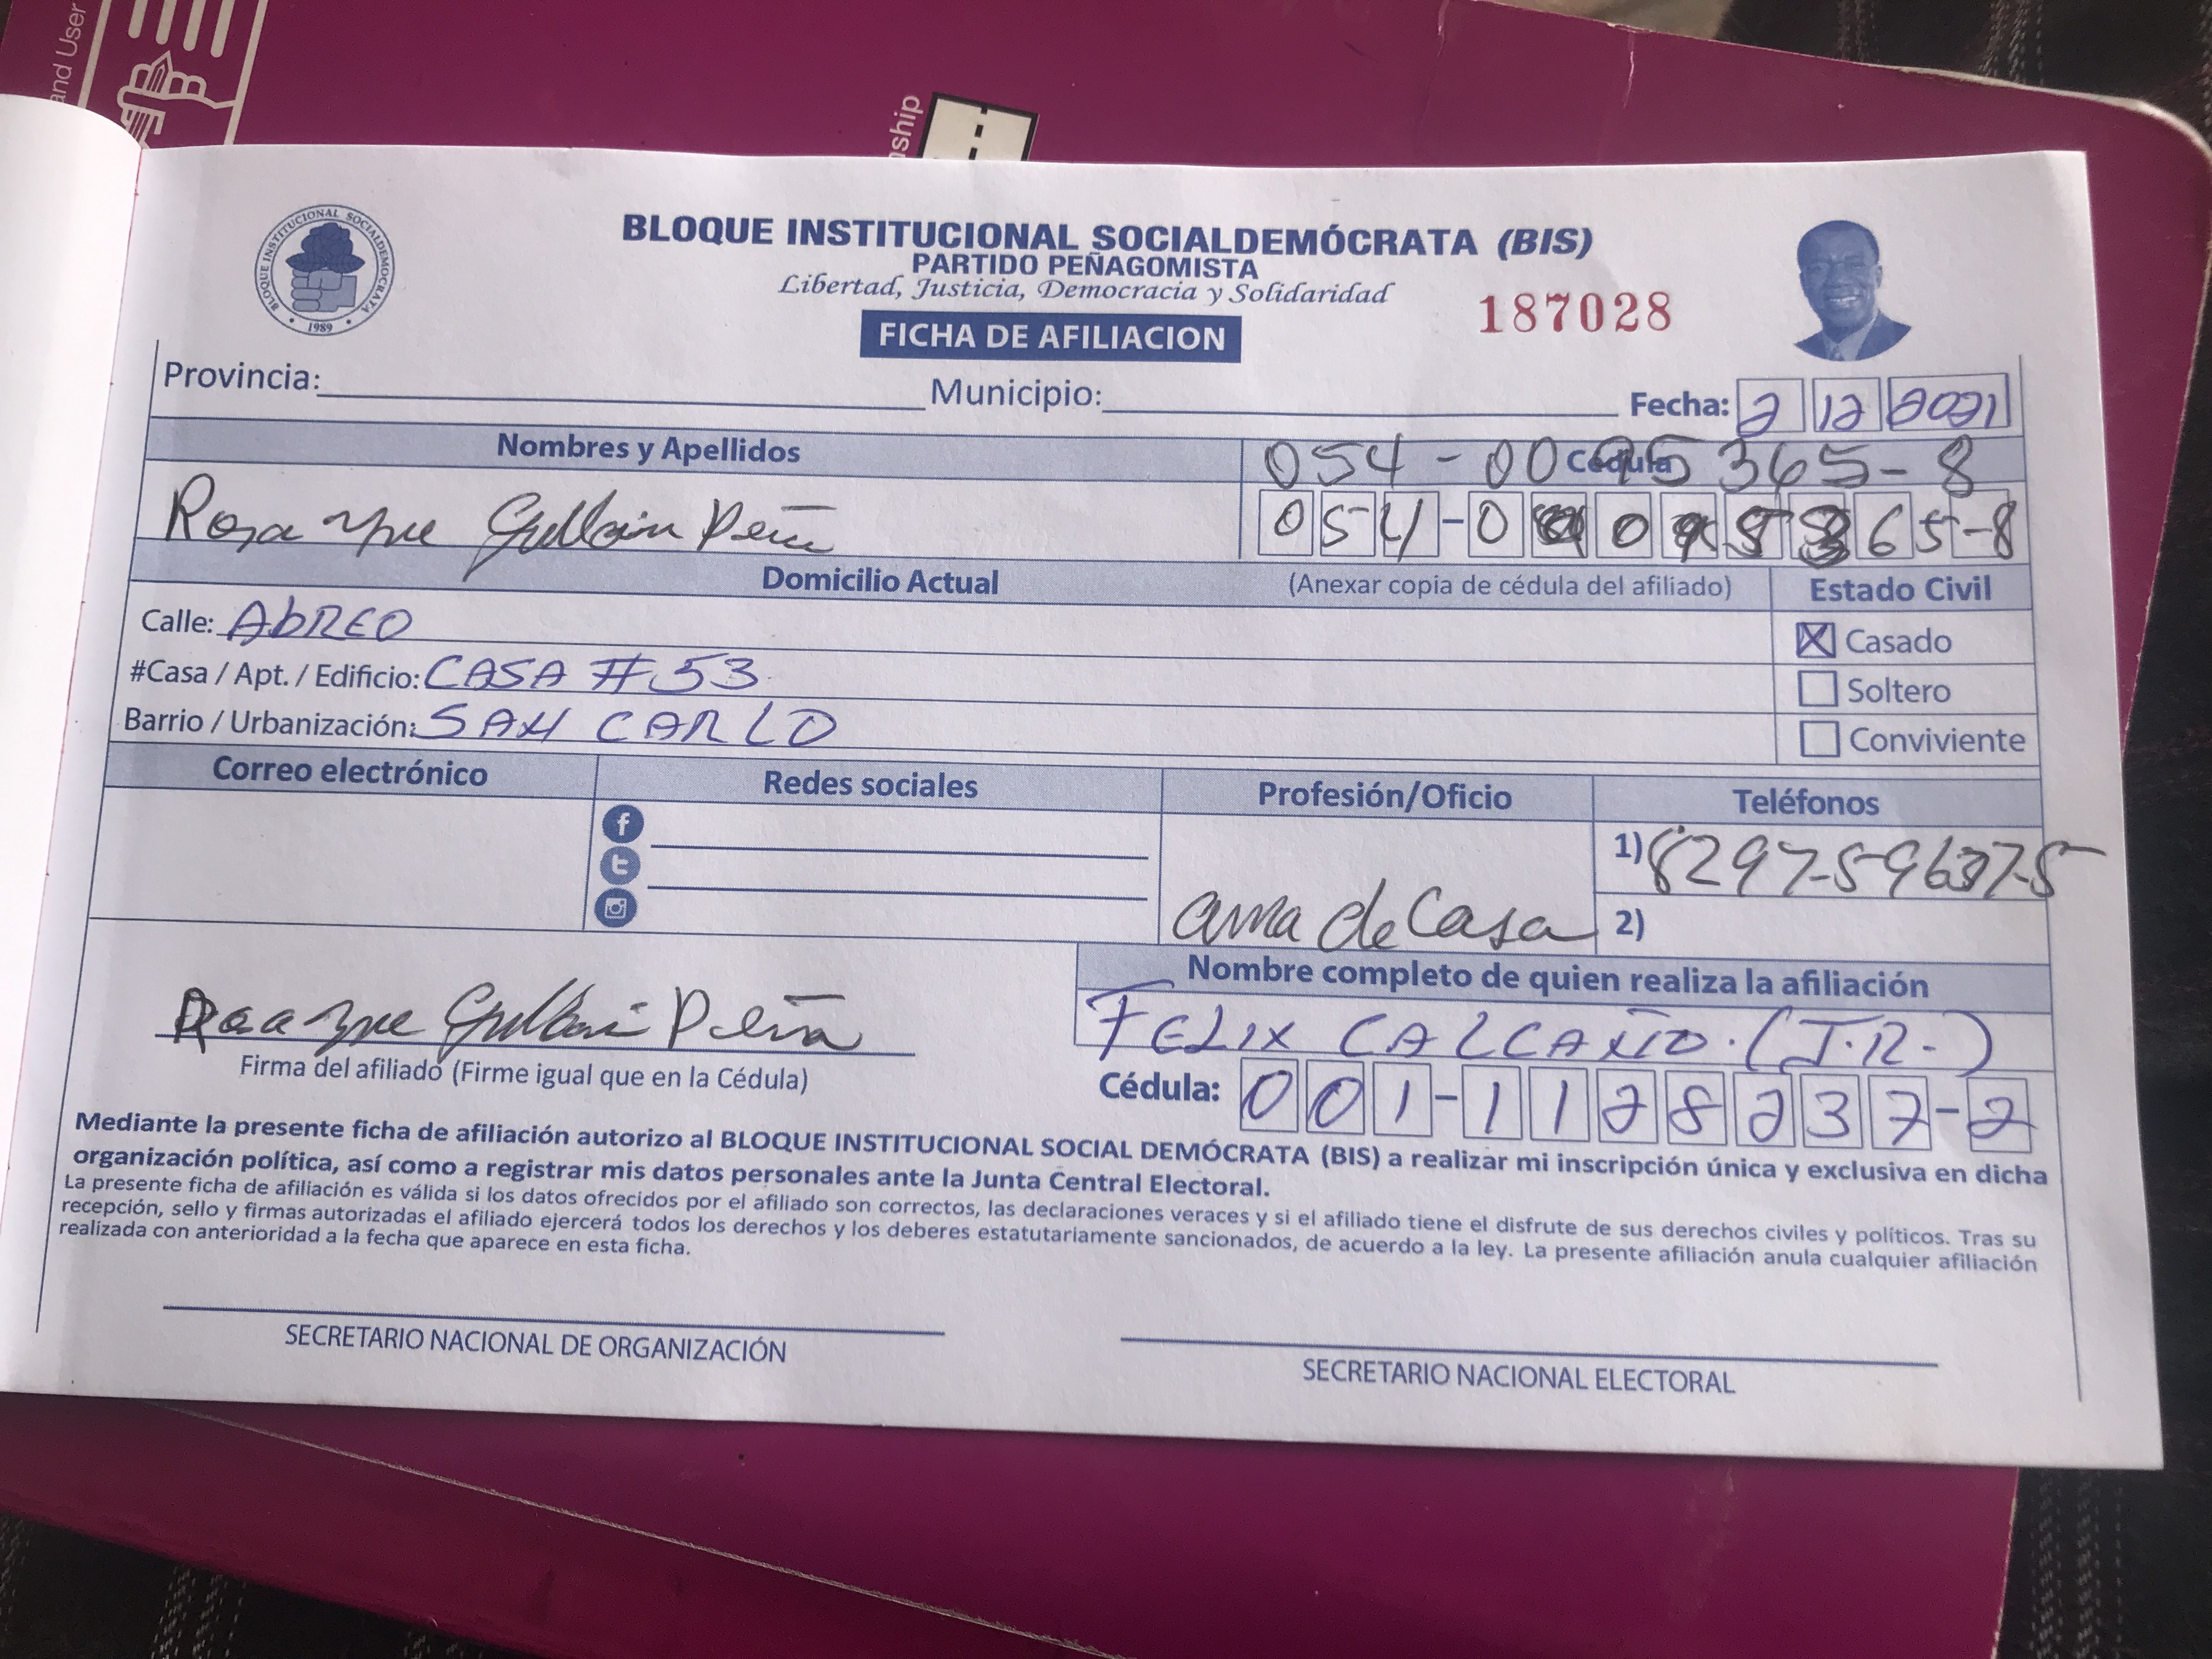 and User
ship
BLOQUE INSTITUCIONAL SOCIALDEMOCRATA
1989
BLOQUE INSTITUCIONAL SOCIALDEMÓCRATA (BIS)
PARTIDO PEÑAGOMISTA
Libertad, Justicia, Democracia y Solidaridad
187028
FICHA DE AFILIACION
Provincia: Municipio: Fecha: 2 12 2021
Nombres y Apellidos Cédula
054-0095365-8
Rosa Peña 054-0 0 65-8
Domicilio Actual (Anexar copia de cédula del afiliado) Estado Civil
Calle: AbREO
Casado
#Casa / Apt. / Edificio: CASA #53
Soltero
Barrio / Urbanización: SAN CARLO
Conviviente
Correo electrónico Redes sociales Profesión/Oficio Teléfonos
1)
ama de Casa
2)
Nombre completo de quien realiza la afiliación
FELIX CALCAÑO. (J.R.)
Peña
Firma del afiliado (Firme igual que en la Cédula)
Cédula: 001-1128237-2
Mediante la presente ficha de afiliación autorizo al BLOQUE INSTITUCIONAL SOCIAL DEMÓCRATA (BIS) a realizar mi inscripción única y exclusiva en dicha
organización política, así como a registrar mis datos personales ante la Junta Central Electoral.
La presente ficha de afiliación es válida si los datos ofrecidos por el afiliado son correctos, las declaraciones veraces y si el afiliado tiene el disfrute de sus derechos civiles y políticos. Tras su
recepción, sello y firmas autorizadas el afiliado ejercerá todos los derechos y los deberes estatutariamente sancionados, de acuerdo a la ley. La presente afiliación anula cualquier afiliación
realizada con anterioridad a la fecha que aparece en esta ficha.
SECRETARIO NACIONAL DE ORGANIZACIÓN
SECRETARIO NACIONAL ELECTORAL